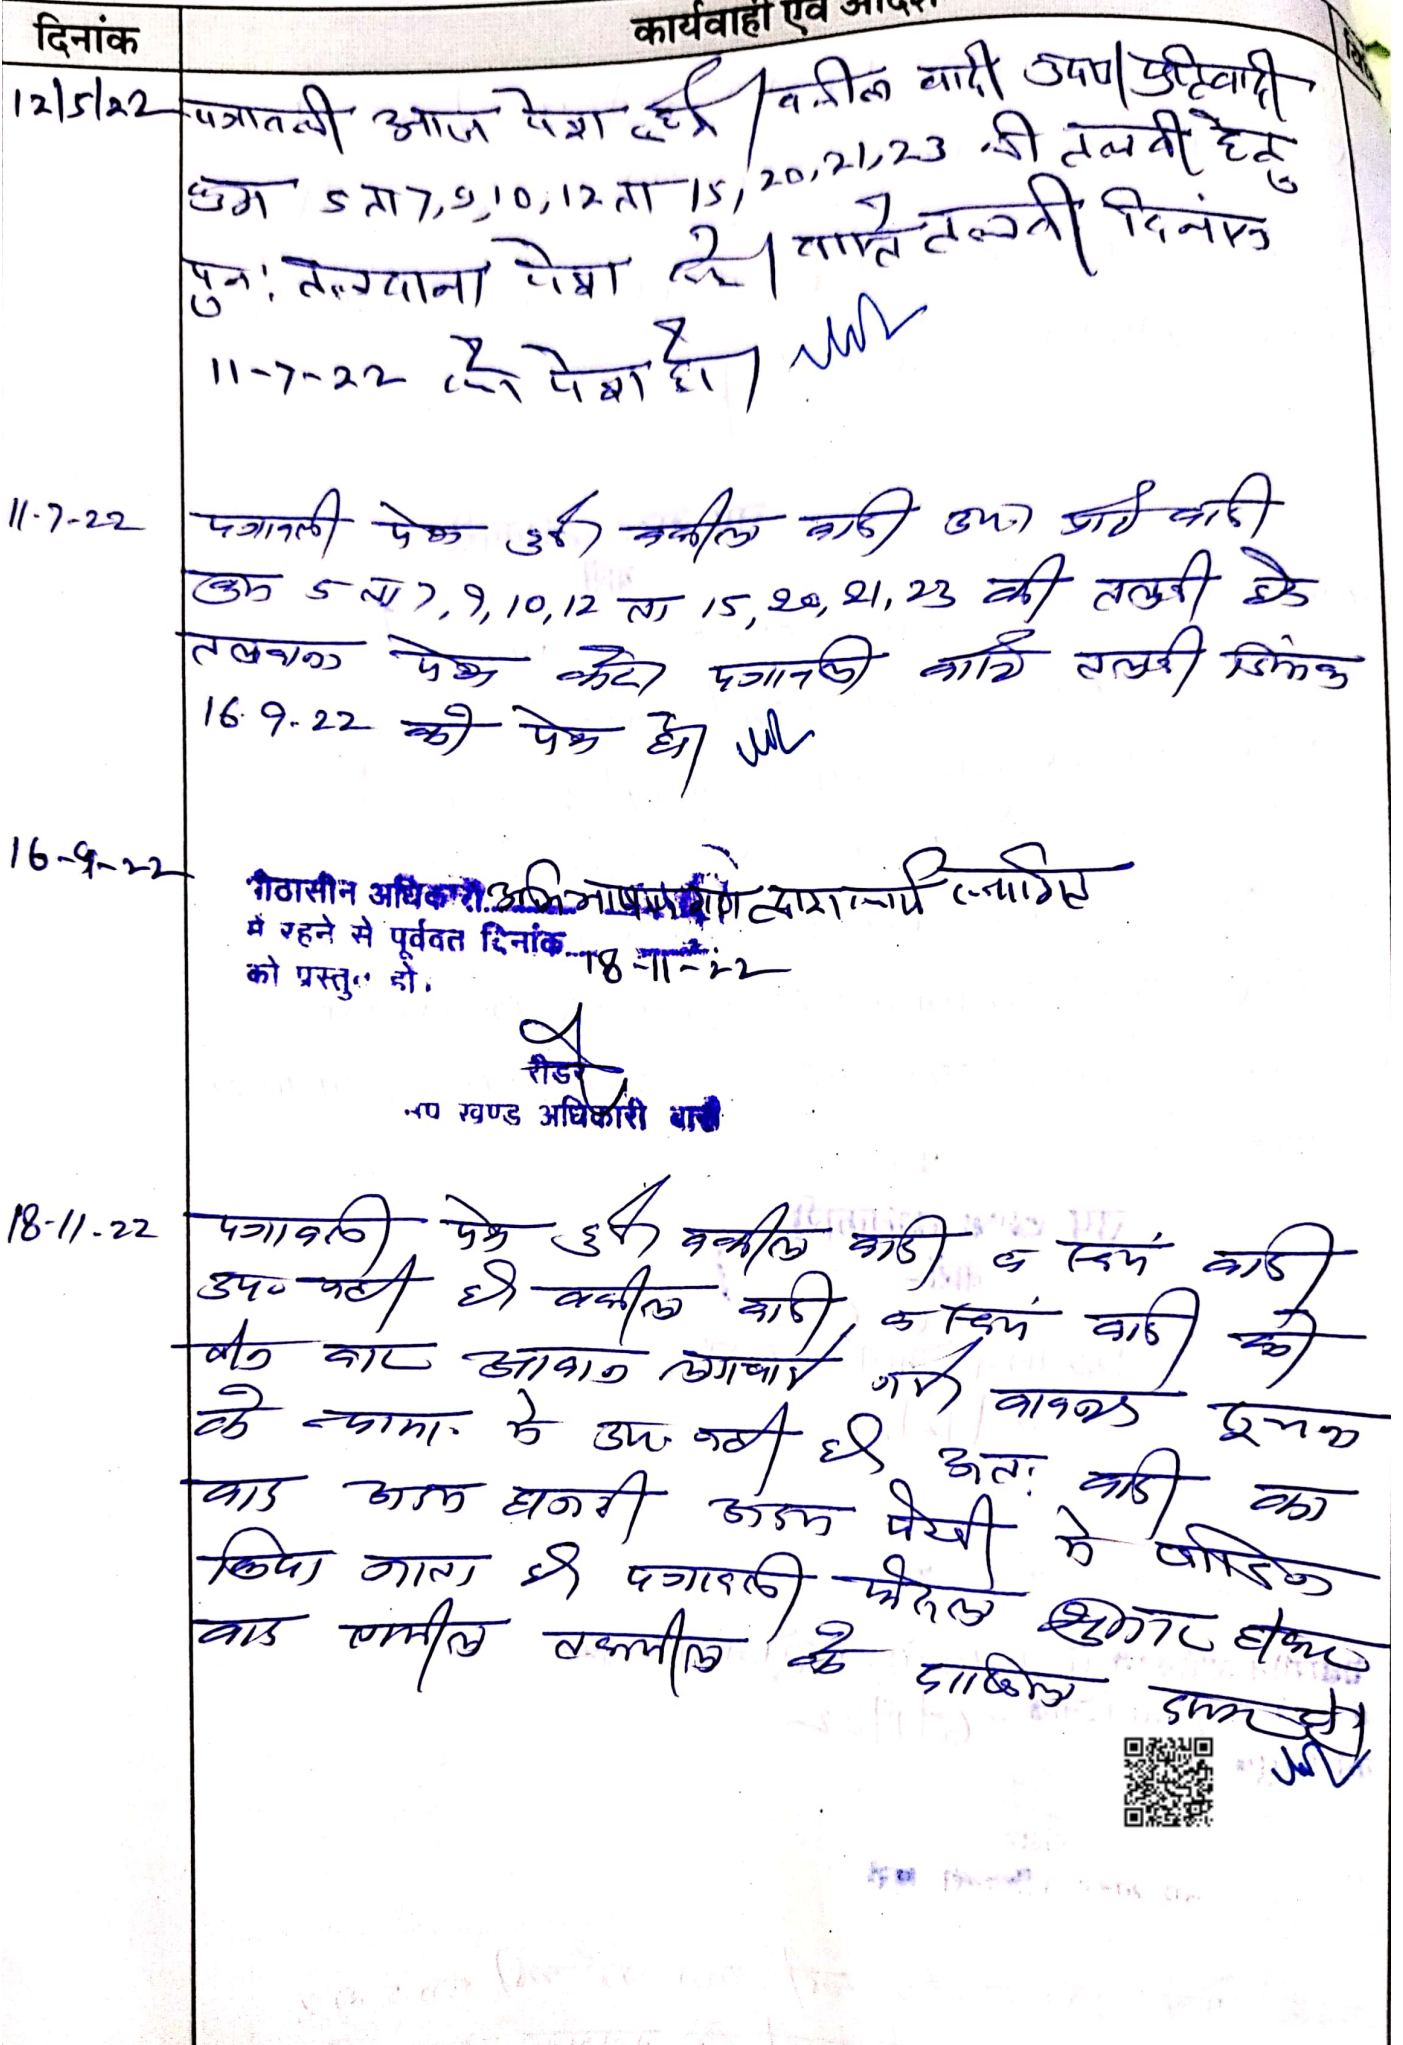 दिनांक
कार्यवाही एवं आदेश
12/5/22 पत्रावली आज पेश हुई। वकील वादी उप०। प्रतिवादी
क्रम 5 ता 7, 9, 10, 12 ता 15, 20, 21, 23 की तलबी हेतु
पुनः तलवाना पेश करे। वास्ते तलबी दिनांक
11-7-22 को पेश हो।
11-7-22 पत्रावली पेश हुई। वकील वादी उप० प्रति वादी
क्रम 5 ता 7, 9, 10, 12 ता 15, 20, 21, 23 की तलबी हेतु
तलवाना पेश करे। पत्रावली वास्ते तलबी दिनांक
16.9.22 को पेश हो।
16-9-22
पीठासीन अधिकारी अभिभाषक गण द्वारा कार्य स्थगित
में रहने से पूर्ववत दिनांक
18-11-22
को प्रस्तुत हो.
रीडर
उप खण्ड अधिकारी
18-11-22 पत्रावली पेश हुई। वकील वादी व स्वयं वादी
उप० नही है। वकील वादी, व स्वयं वादी को
तीन बार आवाज लगवाई गई। बावजूद सूचना
के न्याया. में उप० नही है। अतः वादी का
वाद अदम हाजरी अदम पैरवी में खारिज
किया जाता है। पत्रावली फैसल शुमार होकर
बाद तामील तकमील के दाखिल दफ्तर हो।